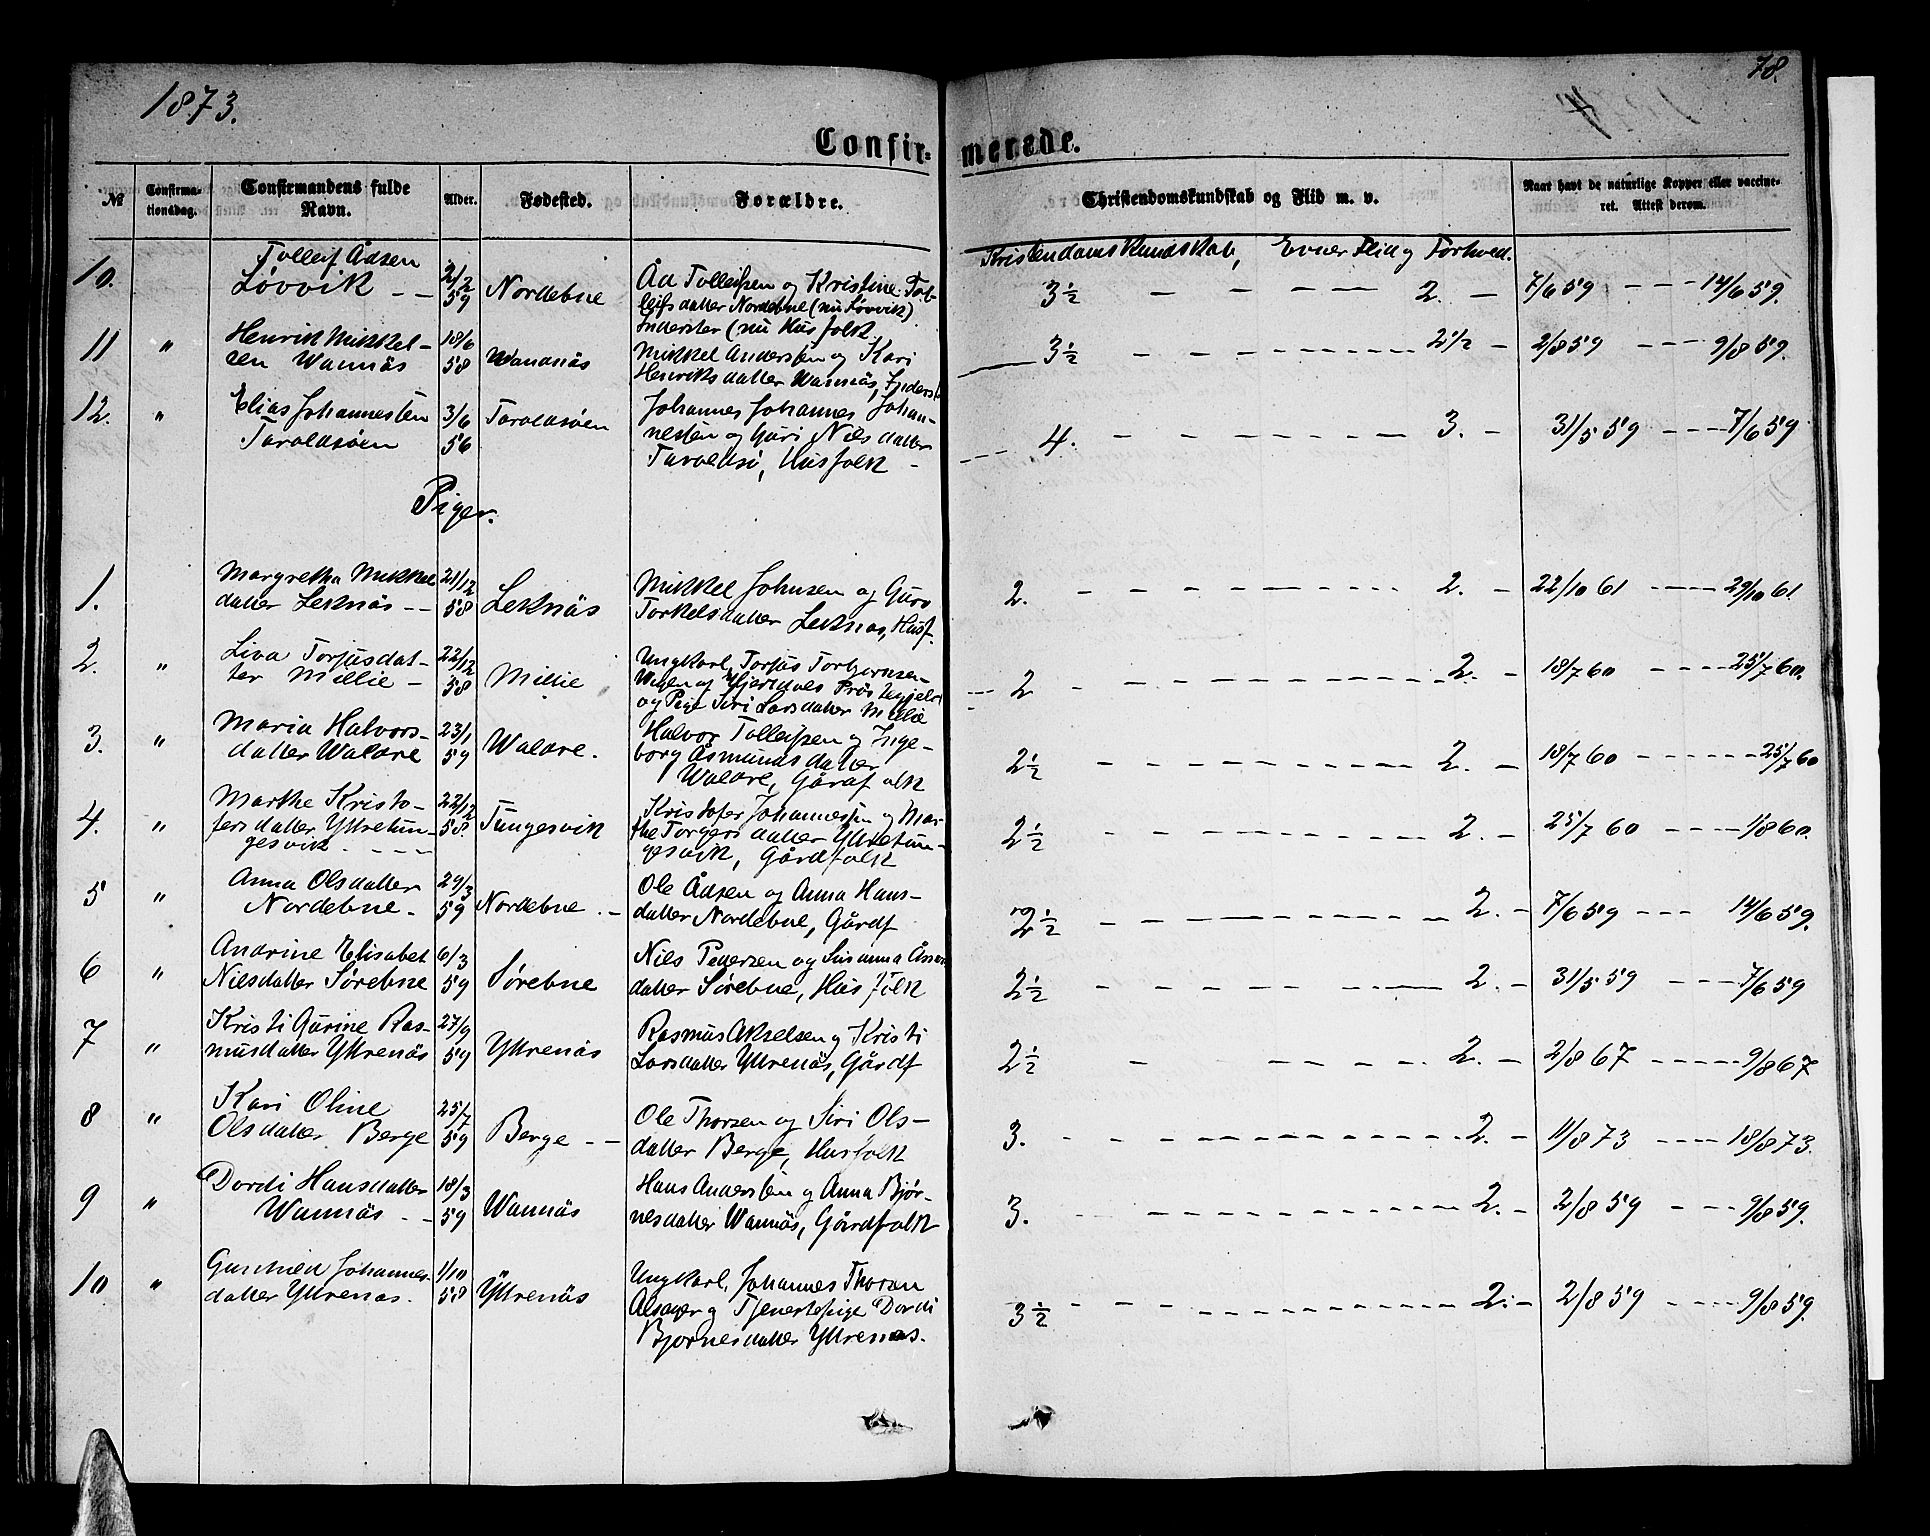 1873.
78.
Confir- merede.
№
Confirma-
tionsdag.
Confirmandens fulde
Navn.
Alder.
Fødested.
Forældre.
Christendomskundskab og Flid m. v.
Naar havt de naturlige Kopper eller vaccine-
ret. Attest derom.
Kristendomskundskab, Evner Flid og Forhold.
10. Tolleif Ådsen
Løvvik - - 2/2 59 Nordebne
Åd Tolleifsen og Kristine Tol-
leifsdatter Nordebne (nu Løvvik)
Inderster (nu Husfolk
3½ - - - - - 2. - 7/6 59 - - - 14/6 59.
11 " Henrik Mikkel-
sen Wannäs 18/6 58 Wandnäs
Mikkel Andersen og Kari
Henriksdatter Wannäs, Inderst
3½ - - - - - 2½ - 2/8 59 - - - 9/8 59.
12. " Elias Johannessen
Taraldsøen 3/6 56 Taraldsøen
Johannes Johannes Johan-
nessen og Guri Nilsdatter
Taraldsø, Husfolk -
4. - - - - - 3. - 31/5 59 - - - 7/6 59
Piger.
1. Margretha Mikkels
datter Leknäs - - 21/12 58 Leknäs
Mikkel Johnsen og Guro
Torkelsdatter Leknas, Husf.
2. - - - - - 2. - 22/10 61 - - - 29/10 61.
2. " Liva Torjusdat-
ter Millie - 22/12 58 Millie
Ungkarl Torjus Torbjornsen
og Hjertdals Prästegjeld
og Pige Siri Larsdatter Millie
2 - - - - - 2. - 18/7 60 - - - 25/7 60.
3. " Maria Halvors-
datter Waldre 23/1 59 Waldre.
Halvor Tolleifsen og Inge-
borg Åsmundsdatter
Waldre, Gårdfolk
2½ - - - - - 2. - 18/7 60 - - - 25/7 60
4. " Marthe Kristo-
fersdatter Yttretun-
gesvik - - - 22/12 58. Tungesvik
Kristofer Johannessen og Mar-
the Torgersdatter Yttretun-
gesvik, Gårdfolk
2½ - - - - - 2. - 25/7 60 - - - 1/8 60.
5 " Anna Olsdatter
Nordebne - 29/3 59 Nordebne - -
Ole Ådsen og Anna Hans-
datter Nordebne, Gårdf
2½ - - - - - 2. - 7/6 59 - - - 14/6 59.
6 " Andrine Elisabet
Nielsdatter Sørebne 6/3 59 Sørebne
Niels Pedersen og Susanna
datter Sørebne, Husfolk
2½ - - - - - 2. - 31/5 59 - - - 7/6 59
7 " Kristi Gurine Ras-
musdatter Yttrenäs 27/9 59 Yttrenäs
Rasmus Akselsen og Kristi
Larsdatter Yttrenäs, Gårdf
2½ - - - - - 2. - 2/8 67 - - - 9/8 67
8 " Kari Oline
Olsdatter Berge 25/7 59 Berge - -
Ole Thorsen og Siri Ols-
datter Berge, Husfolk
3. - - - - - 2. - 11/8 73 - - - 18/8 73.
9 " Dordi Hansdatter
Wannäs - - 18/3 59 Wannäs
Hans Andersen og Anna Bjør-
nesdatter Wannäs, Gårdfolk
3. - - - - - 2. - 2/8 59 - - - 9/8 59.
10 " Gunhild Johannes-
datter Yttrenas. 1/10 58 Yttrenäs
Ungkarl, Johannes Thorsen
Alsager og Tjenestepige Dordi
Bjornesdatter Yttrenas.
3½ - - - - - 2. - 2/8 59 - - - 9/8 59.